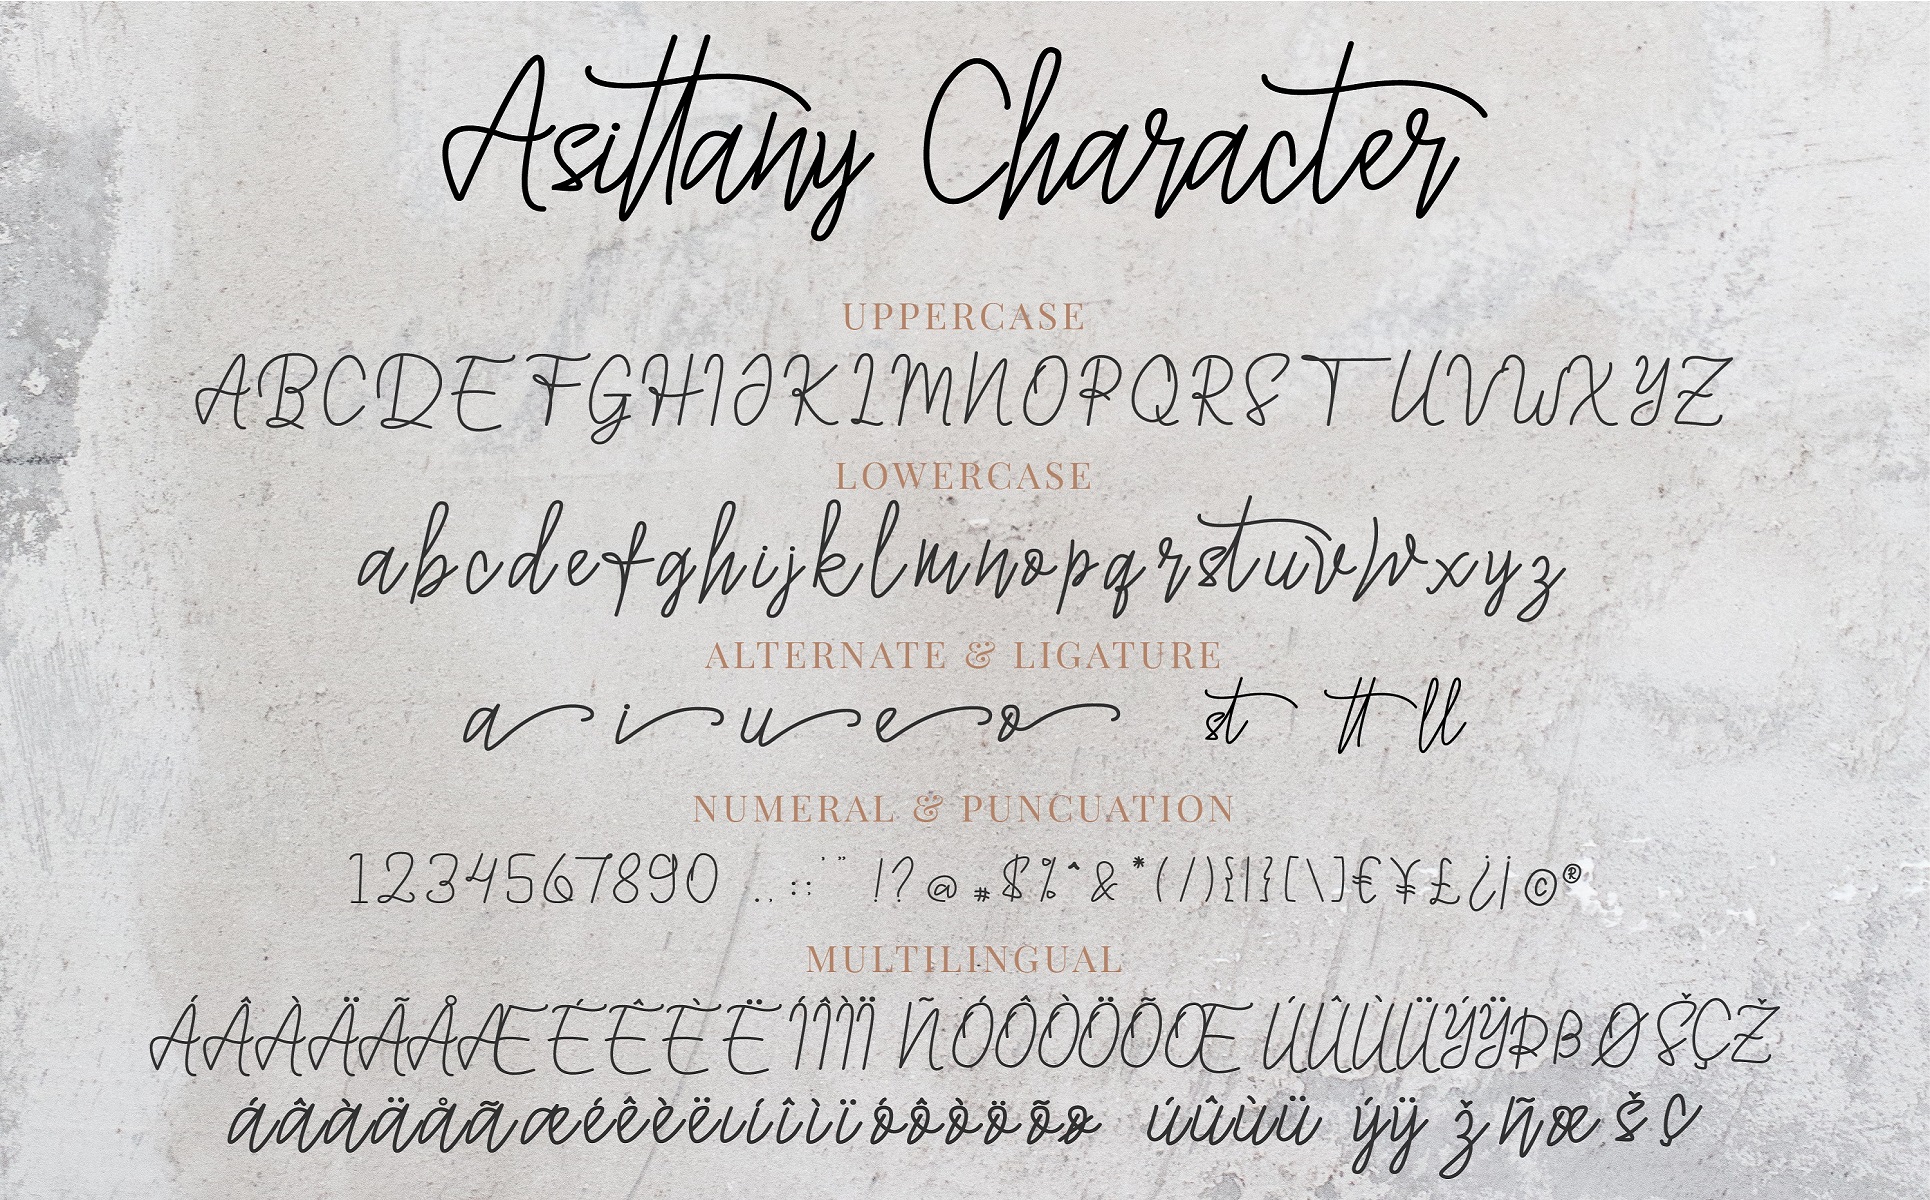 Asittany Character
UPPERCASE
ABCDEFGHIJKLMNOPQRSTUVWXYZ
LOWERCASE
abcdefghijklmnopqrstuvwxyz
ALTERNATE & LIGATURE
a i u e o st tt ll
NUMERAL & PUNCUATION
1234567890 . , : ; ' " ! ? @ # $ % ^ & * ( / ) { | } [ \ ] € ¥ £ ¿ ¡ © ®
MULTILINGUAL
ÁÂÀÄÃÅÆÉÊÈËÍÎÌÏ ÑÓÔÒÖÕŒ ÚÛÙÜÝŸ Ø ŠÇŽ
áâàäåãæéêèëıíîìïóôòöõø úûùü ýÿ ž ñœ š